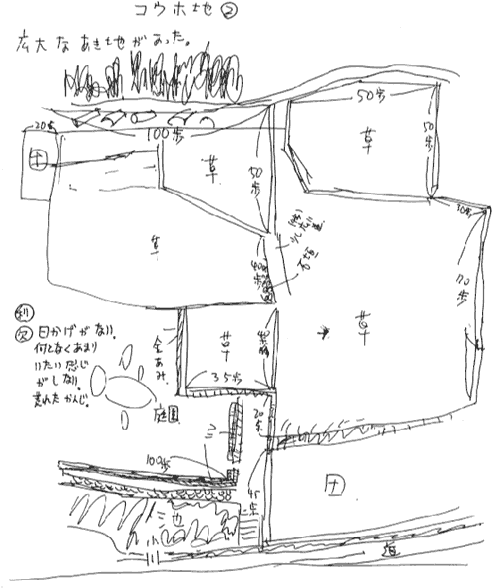 コウホ地②
広大なあき地があった。
50歩
20歩
100歩
草
50歩
草
50歩
土
30歩
石垣
70歩
草
草
利
欠
日かげがない。
何となくあまり
いたい感じ
がしない。
荒れたかんじ。
金あみ
草
35歩
庭園
20歩
100歩
土
45歩
道